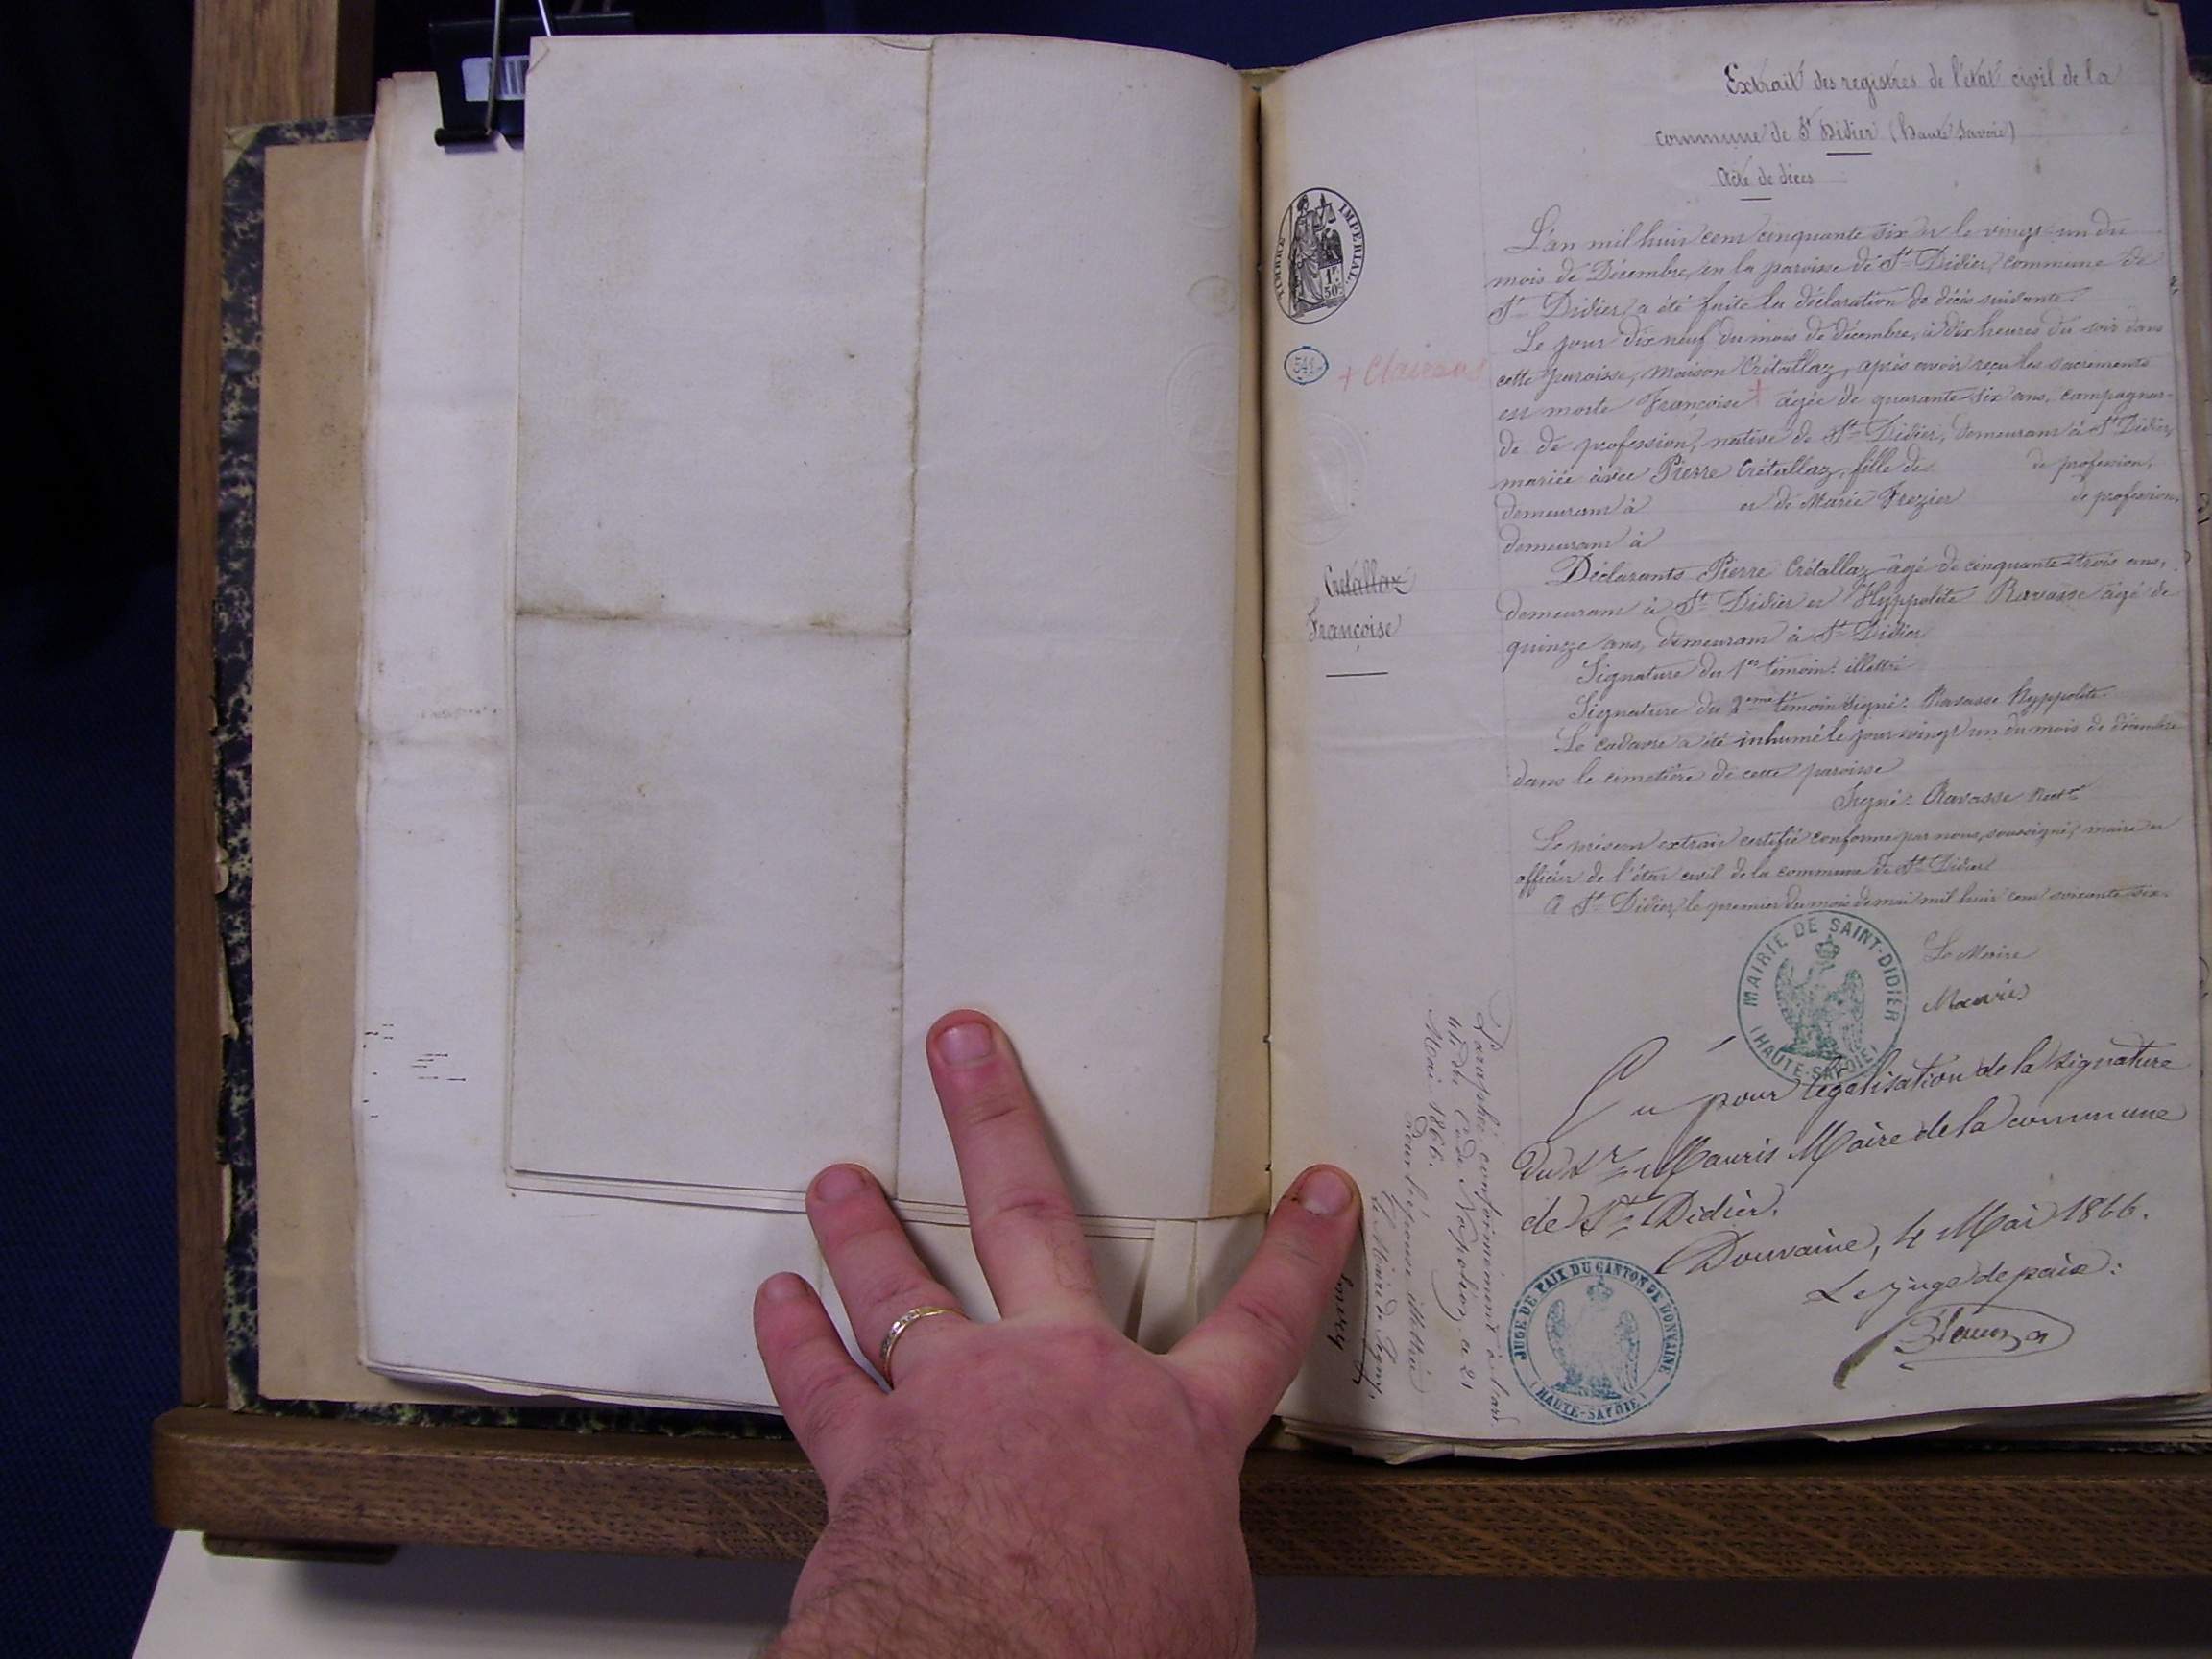 Extrait des registres de l'état civil de la
commune de St Didier (haute Savoie)
Acte de décès
TIMBRE IMPERIAL
1F. 50c
541
+ Clairzas
L'an mil huit cent cinquante six et le vingt-un du
mois de Décembre, en la paroisse de St Didier, commune de
St Didier a été faite la déclaration de décès suivante.
Le jour dix neuf du mois de décembre, à dix heures du soir dans
cette paroisse, maison Crétallaz, après avoir reçu les sacrements
est morte Françoise + âgée de quarante six ans, campagnar-
de de profession, native de St Didier, demeurant à St Didier,
mariée avec Pierre Crétallaz, fille de de profession,
demeurant à et de Marie Frezier de profession,
demeurant à
Crétallaz
Françoise
Déclarants Pierre Crétallaz âgé de cinquante trois ans,
demeurant à St Didier et Hyppolite Ravasse âgé de
quinze ans, demeurant à St Didier
Signature du 1er témoin: illettré
Signature du 2eme témoin signé: Ravasse hyppolite.
Le cadavre a été inhumé le jour vingt un du mois de décembre
dans le cimetière de cette paroisse
Signé: Ravasse Rect
Le présent extrait certifié conforme par nous, soussigné, maire et
officier de l'état civil de la commune de St Didier
A St Didier, le premier du mois de mai mil huit cent soixante six.
Le Maire
Mauris
MAIRIE DE SAINT-DIDIER
(HAUTE-SAVOIE)
Vu pour légalisation de la signature
du Sr Mauris Maire de la commune
de St Didier.
Douvaine, 4 Mai 1866.
Le juge de paix:
JUGE DE PAIX DU CANTON DE DONVAINE
(HAUTE-SAVOIE)
Paraphé conformément à l'art.
44 du Code Napoléon, ce 21
Mai 1866.
Pour l'épouse illettrée
Le Maire de